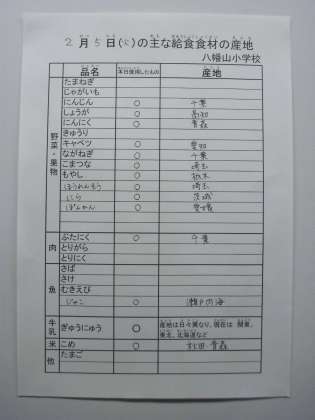 2月5日(火)の主な給食食材の産地
八幡山小学校
品名 本日使用したもの 産地
野菜・果物
たまねぎ
じゃがいも
にんじん ○ 千葉
しょうが ○ 高知
にんにく ○ 青森
きゅうり
キャベツ ○ 愛知
ながねぎ ○ 千葉
こまつな ○ 埼玉
もやし ○ 栃木
ほうれんそう ○ 埼玉
にら ○ 茨城
ぽんかん ○ 愛媛
肉
ぶたにく ○ 千葉
とりがら
とりにく
魚
さば
さけ
むきえび
じゃこ ○ 瀬戸内海
牛乳 ぎゅうにゅう ○ 産地は日々異なり、現在は 関東、
東北、北海道など
米 こめ ○ 秋田・青森
他 たまご